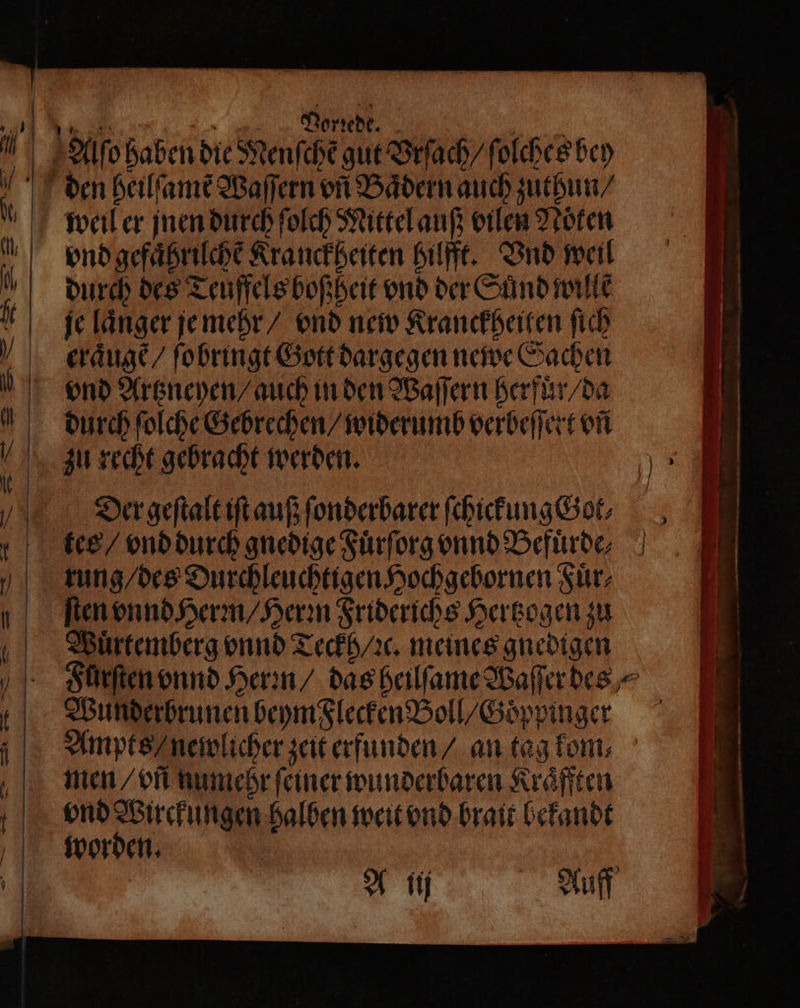 Vorrede.
Alſo haben die Menſchẽ gut Vrſach/ ſolches bey
den heilſamẽ Waſſern vñ Baͤdern auch zuthun/
weil er jnen durch ſolch Mittel auß vilen Noͤten
vnd gefaͤhrilchẽ Kranckheiten hilfft. Vnd weil
durch des Teuffels boßheit vnd der Suͤnd willẽ
je laͤnger je mehr / vnd new Kranckheiten ſich
eraͤugẽ / ſo bringt Gott dargegen newe Sachen
vnd Artzneyen/ auch in den Waſſern herfuͤr/ da
durch ſolche Gebrechen/ widerumb verbeſſert vñ
zu recht gebracht werden.
Der geſtalt iſt auß ſonderbarer ſchickung Got⸗
tes/ vnd durch gnedige Fuͤrſorg vnnd Befuͤrde⸗
rung/ des Durchleuchtigen Hochgebornen Fuͤr⸗
ſten vnnd Herꝛn/ Herꝛn Friderichs Hertzogen zu
Wuͤrtemberg vnnd Teckh/ ꝛc. meines gnedigen
Fuͤrſten vnnd Herꝛn / das heilſame Waſſer des
Wunderbrunen beym Flecken Boll/ Goͤppinger
Ampts/ newlicher zeit erfunden / an tag kom⸗
men / vñ numehr ſeiner wunderbaren Kraͤfften
vnd Wirckungen halben weit vnd brait bekandt
worden.
A iij Auff